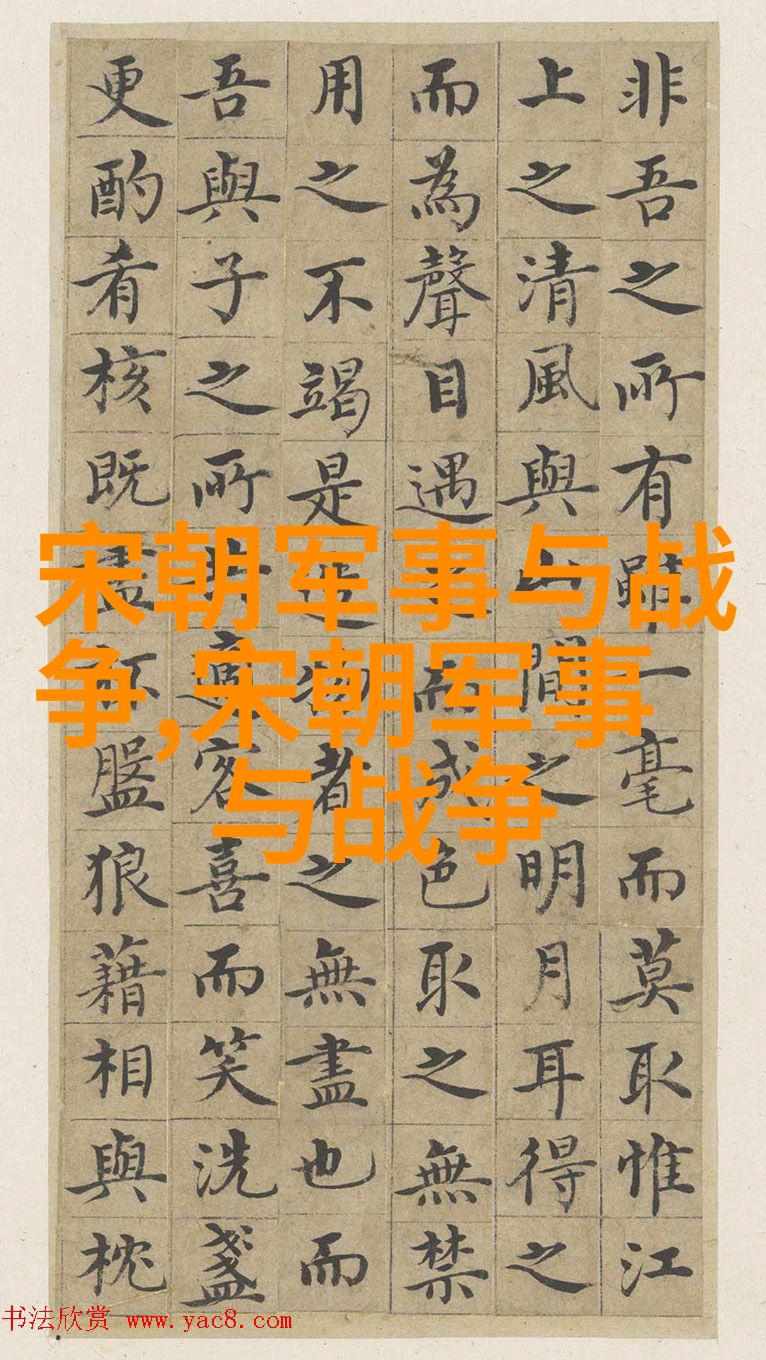 非吾之所有雖一毫而莫取惟江
上之清風與山間之明月耳得之
而為聲目遇之而成色取之無禁
用之不竭是造物者之無盡也而
吾與子之所共適客喜而笑洗盞
更酌肴核既盡杯盤狼藉相與枕
宋朝军事与战
争,宋朝军事
与战争
书法欣赏 www.yac8.com